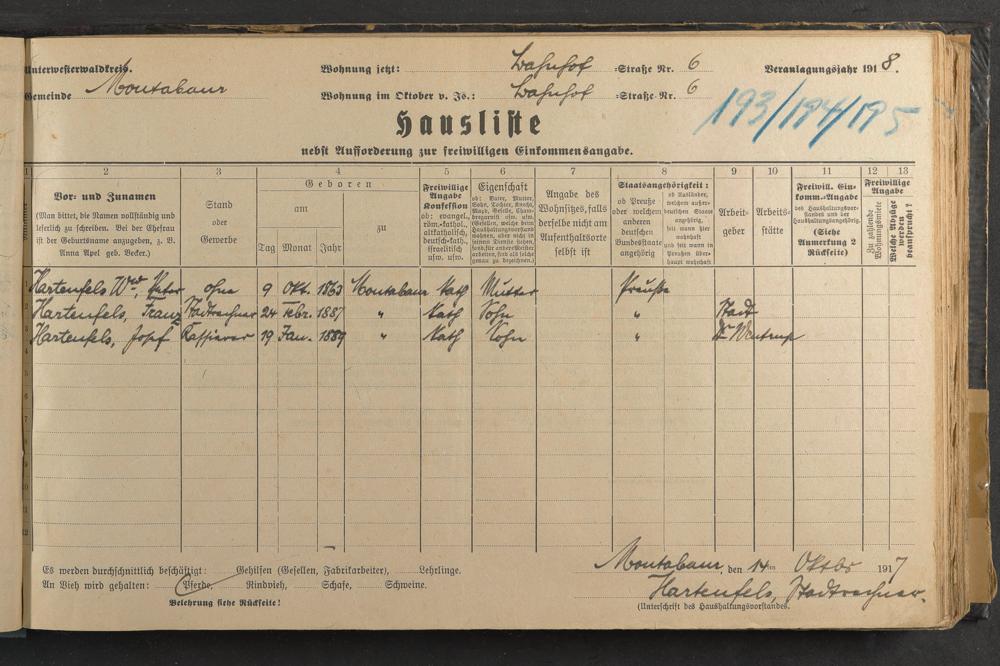 Unterwesterwaldkreis. Wohnung jetzt: Bahnhof =Straße Nr. 6 Veranlagungsjahr 1918.
Gemeinde Montabaur Wohnung im Oktober v. Js.: Bahnhof =Straße Nr. 6
193/194/195
Hausliste
nebst Aufforderung zur freiwilligen Einkommensangabe.
1 2 3 4 5 6 7 8 9 10 11 12 13
Vor- und Zunamen
(Man bittet, die Namen vollständig und
leserlich zu schreiben. Bei der Ehefrau
ist der Geburtsname anzugeben, z. B.
Anna Apel geb. Becker.)
Stand
oder
Gewerbe
Geboren
am
zu
Tag Monat Jahr
Freiwillige
Angabe
Konfession
ob: evangel.,
röm.-kathol.,
altkatholisch,
deutsch-kath.,
israelitisch
usw. usw.
Eigenschaft
ob: Vater, Mutter,
Sohn, Tochter, Knecht,
Magd, Geselle,
Angabe des
Wohnsitzes, falls
derselbe nicht am
Aufenthaltsorte
selbst ist
Staatsangehörigkeit:
ob Preuße
oder welchem
anderen
deutschen
Bundesstaate
angehörig
ob Ausländer,
welchem außer-
deutschen Staate
angehörig,
seit wann hier
wohnhaft
und seit wann in
Preußen über-
haupt wohnhaft
Arbeit-
geber
Arbeits-
stätte
Freiwill. Ein-
komm.-Angabe
des Haushaltungsvor-
standes und der
Haushaltungsangehörig.
(Siehe
Anmerkung 2
Rückseite)
Freiwillige
Angabe
Zu zahlende
Wohnungsmiete
Welche Abzüge
werden
beansprucht?
Hartenfels Wwe, Peter ohne 9 Okt. 1863 Montabaur Kath Mutter Preuße
Hartenfels, Franz Stadtrechner 24 Febr. 1887 " Kath Sohn " Stadt
Hartenfels, Josef Kassierer 19 Jan. 1889 " Kath Sohn "
Es werden durchschnittlich beschäftigt: Gehilfen (Gesellen, Fabrikarbeiter), Lehrlinge.
An Vieh wird gehalten: Pferde, Rindvieh, Schafe, Schweine.
Belehrung siehe Rückseite!
Montabaur, den 14ten Oktober 1917
Hartenfels, Stadtrechner.
(Unterschrift des Haushaltungsvorstandes.